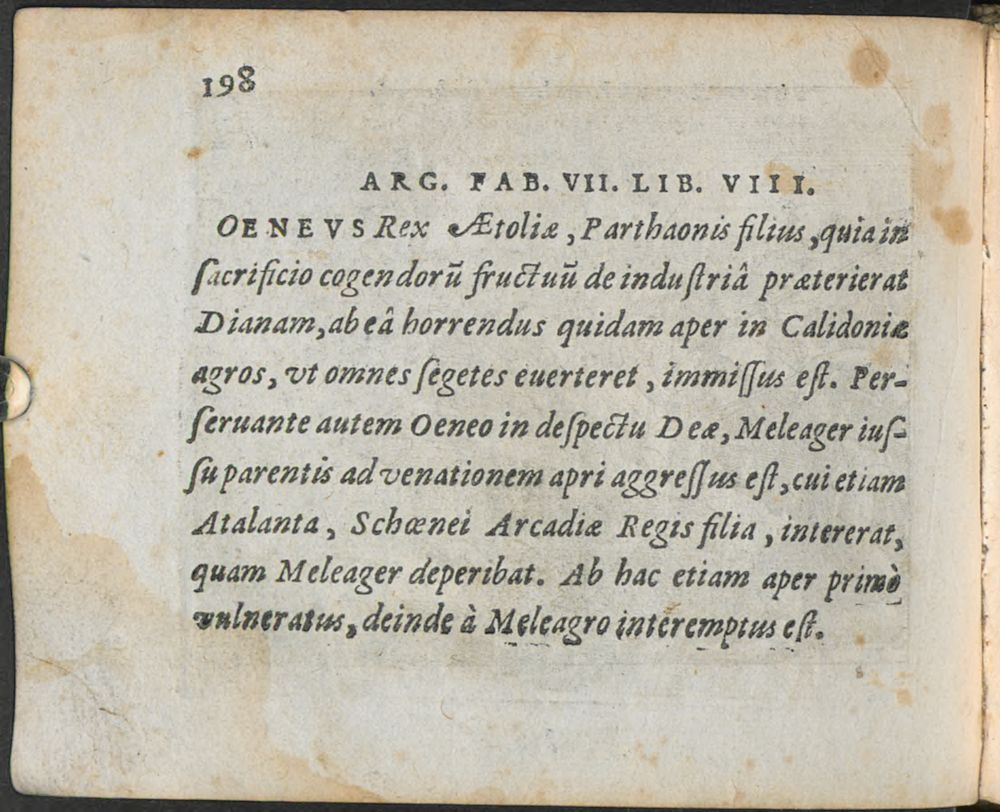 198
ARG. FAB. VII. LIB. VIII.
OENEVS Rex Ætoliæ, Parthaonis filius, quia in
ſacrificio cogendorũ fructuũ de induſtriâ præterierat
Dianam, ab eâ horrendus quidam aper in Calidoniæ
agros, vt omnes ſegetes euerteret, immiſſus eſt. Per-
ſeruante autem Oeneo in deſpectu Deæ, Meleager iuſ-
ſu parentis ad venationem apri aggreſſus eſt, cui etiam
Atalanta, Schœnei Arcadiæ Regis filia, intererat,
quam Meleager deperibat. Ab hac etiam aper primò
vulneratus, deinde à Meleagro interemptus eſt.